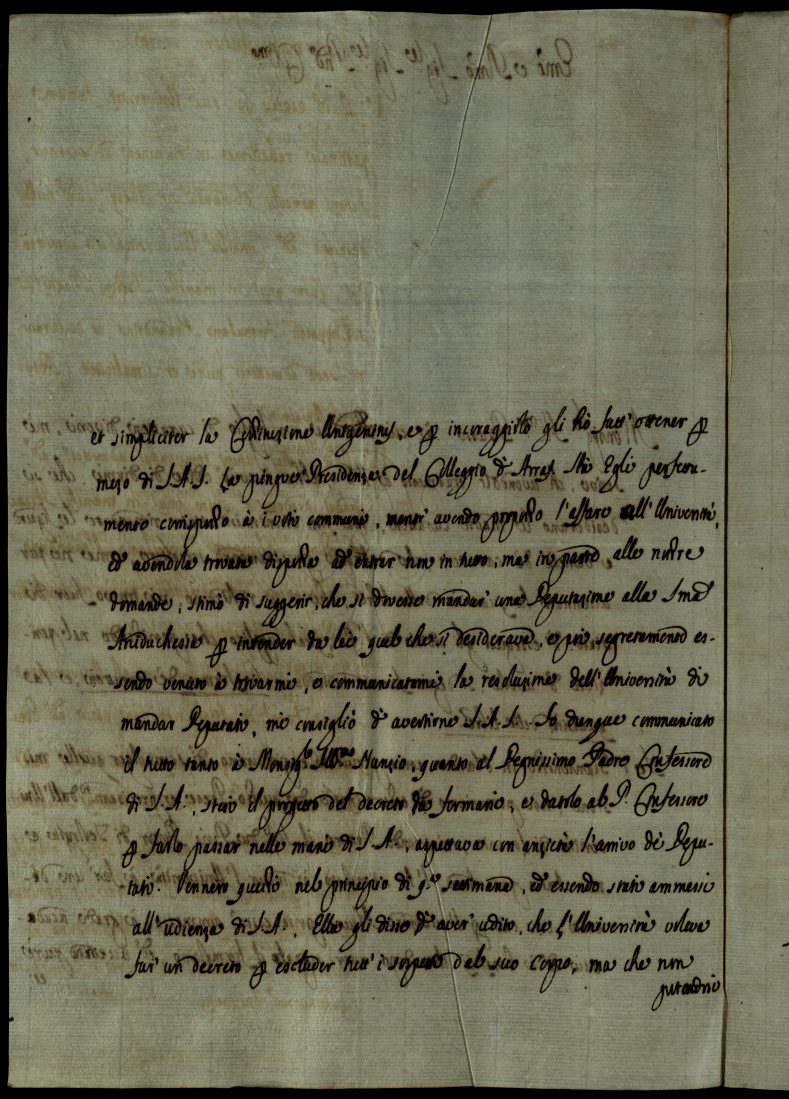 et simpliciter la Constituzione Unigenitus, e p incoraggirlo gli hò fatt' ottener p
mezo di S.A.S. La pingue Presidenza del Colleggio d'Arras. Mà Egli perfetta-
mente corrisposto à i voti communi, mentr' avendo proposto l'affare all'Università,
ed avendola trovata disposta ad entrar non in tutto, ma in parte, alle nostre
domande, stimò di suggerir, che si dovesse mandar' una Deputazione alla Sma
Arciduchessa p intender da lei quel che si desiderava, e poi segretamente es-
sendo venuto à trovarmi, e communicatami la resoluzione dell'Università di
mandar Deputati, mi consigliò d'avertirne S.A.S. Io dunque communicato
il tutto tanto à Monsig.r Ill.mo Nunzio, quanto al Degnissimo Padre Confessore
di S.A., stesi il progetto del decreto da formarsi, e datolo al P. Confessore
p farlo passar nelle mani di S.A., aspettava con anzietà l'arrivo de' Depu-
tati. Vennero questi nel principio di q.ta settimana, ed essendo stati ammessi
all'udienza di S.A., Ella gli disse d'aver' udito, che l'Università voleva
far' un decreto p escluder tutt' i sospetti dal suo Corpo, ma che non